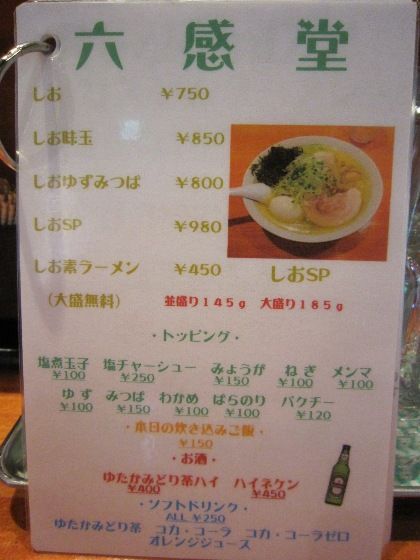 六 感 堂
しお ￥750
しお味玉 ￥850
しおゆずみつば ￥800
しおSP ￥980
しお素ラーメン ￥450
しおSP
（大盛無料） 並盛り１４５ｇ 大盛り１８５ｇ
・トッピング・
塩煮玉子 塩チャーシュー みょうが ねぎ メンマ
￥100 ￥250 ￥150 ￥100 ￥100
ゆず みつば わかめ ばらのり パクチー
￥100 ￥150 ￥100 ￥100 ￥120
・本日の炊き込みご飯・
￥150
・お酒・
ゆたかみどり茶ハイ ハイネケン
￥400 ￥450
・ソフトドリンク・
ALL ￥250
ゆたかみどり茶 コカ・コーラ コカ・コーラゼロ
オレンジジュース